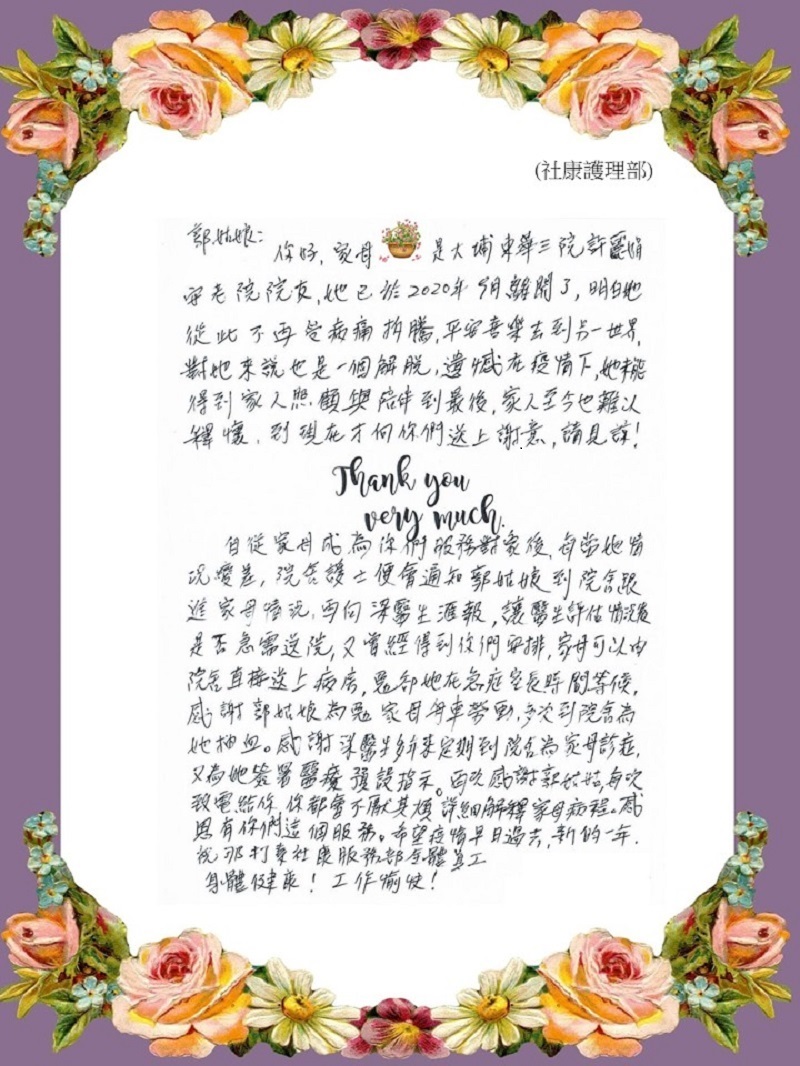 (社康護理部)
郭姑娘：
你好，家母 是大埔東華三院許麗娟
安老院院友，她已於2020年9月離開了，明白她
從此不再受病痛折騰，平安喜樂去到另一世界，
對她來說也是一個解脫，遺憾在疫情下，她未能
得到家人照顧與陪伴到最後，家人至今也難以
釋懷，到現在才向你們送上謝意，請見諒！
Thank you
very much.
自從家母成為你們服務對象後，每當她情
況變差，院舍護士便會通知郭姑娘到院舍跟
進家母情況，再向梁醫生滙報，讓醫生評估情況後
是否急需送院，又曾經得到你們安排，家母可以由
院舍直接送上病房，免卻她在急症室長時間等候。
感謝郭姑娘為免家母舟車勞動，多次到院舍為
她抽血。感謝梁醫生多年來定期到院舍為家母診症，
又為她簽署醫療預設指示。再次感謝郭姑娘，每次
致電給你，你都會不厭其煩詳細解釋家母病程。感
恩有你們這個服務。希望疫情早日過去，新的一年，
祝那打素社康服務部全體員工
身體健康！工作愉快！